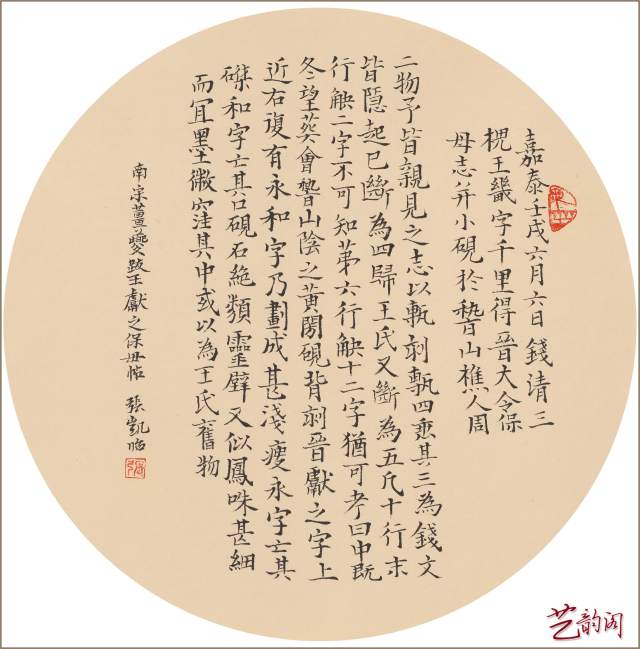 嘉泰壬戌六月六日錢清三
槐王畿字千里得晉大令保
母志并小硯於稽山樵人周
二物予皆親見之志以甎刻甎四垂其三為錢文
皆隱起已斷為四歸王氏又斷為五凡十行末
行缺二字不可知第六行缺十二字猶可考曰中既
冬望葬會稽山陰之黃閍硯背刻晉獻之字上
近右復有永和字乃劃成甚淺瘦永字亡其
磔和字亡其口硯石絶類靈璧又似鳳咮甚細
而宜墨微窪其中或以為王氏舊物
南宋薑夔跋王獻之保母帖 張凱臨
艺韵阁